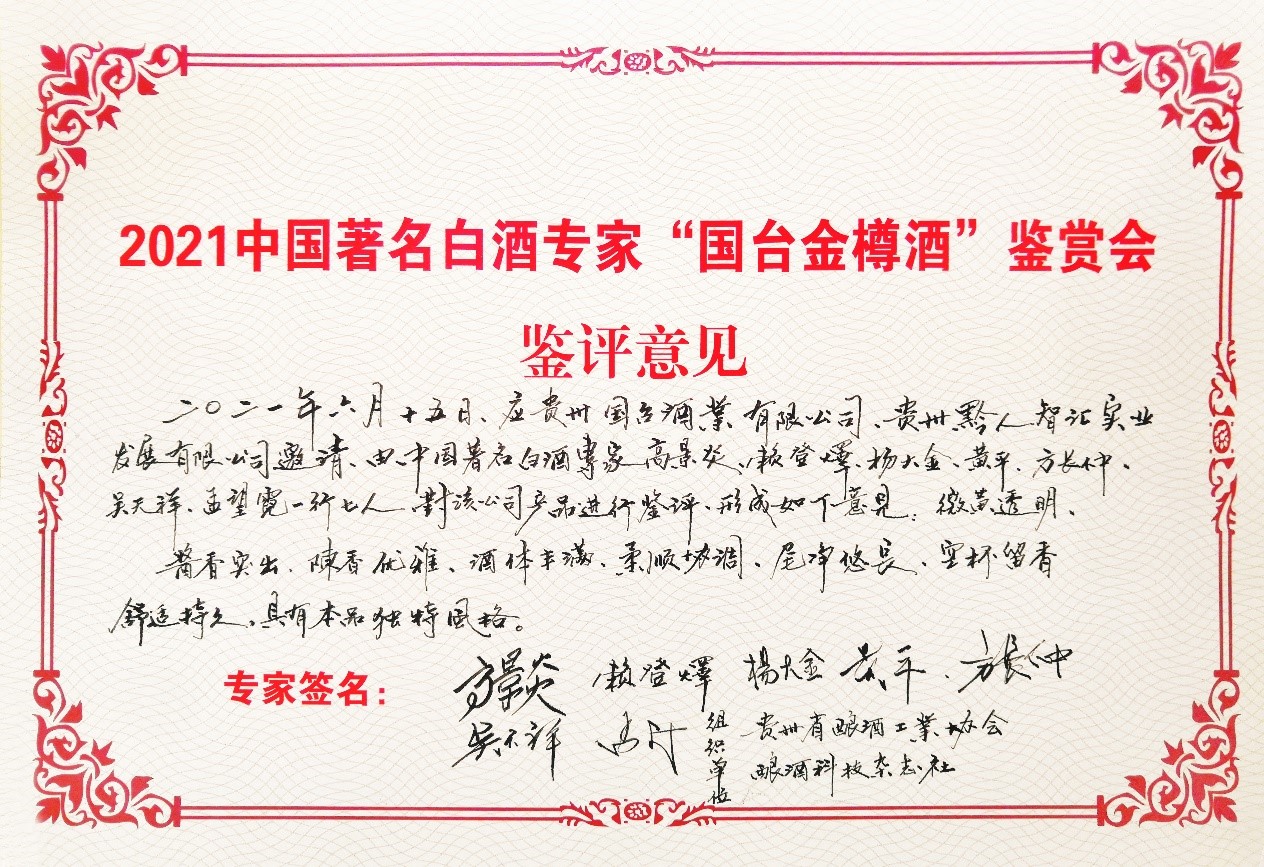 2021中国著名白酒专家“国台金樽酒”鉴赏会
鉴评意见
二〇二一年六月十五日、应贵州国台酒業有限公司、贵州黔人智汇实业
发展有限公司邀请、由中国著名白酒專家高景炎、赖登燡、杨大金、黄平、方长仲、
吴天祥、孟望霓一行七人、對该公司产品进行鉴评、形成如下意見：微黄透明、
酱香突出、陳香优雅、酒体丰满、柔顺协调、尾净悠長、空杯留香
舒适持久、具有本品独特風格。
专家签名：
高景炎 赖登燡 楊大金 黄平 方長仲
吴天祥
组织单位
贵州省酿酒工業协会
酿酒科技杂志社